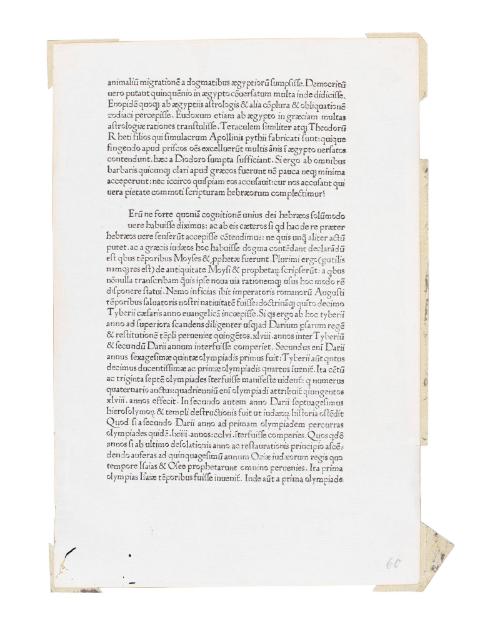 animaliū migrationē a dogmatibus ægyptiorū sumpsisse. Democritū
uero putant quinquēnio in ægypto cōuersatum multa inde didicisse.
Enopidē quoq; ab ægyptiis astrologis & alia cōplura & obliquationē
zodiaci percepisse. Eudoxum etiam ab ægypto in græciam multas
astrologiæ rationes transtulisse. Teraculem similiter atq; Theodorū
Rheti filios qui simulacrum Apollinis pythii fabricati sunt: quique
fingendo apud priscos oēs excelluerūt multis ānis ī ægypto uersatos
contendunt. hæc a Diodoro sumpta sufficiant. Si ergo ab omnibus
barbaris quicunq; clari apud græcos fuerunt nō pauca neq; minima
acceperunt: nec iccirco quispiam eos accusauit: cur nos accusant qui
uera pietate commoti scripturam hebræorum complectimur?
Erū ne forte quoniā cognitionē unius dei hebræos solūmodo
uere habuisse diximus: ac ab eis cæteros si qd hac de re præter
hebræos uere senserūt accepisse cōtendimus: ne quis unq̄ aliter actū
putet. ac a græcis iudæos hoc habuisse dogma contēdant declarādū
est qbus tēporibus Moyses & pphetæ fuerunt. Plurimi ergo (putilis
namq; res est) de antiquitate Moysi & prophetaꝝ scripserūt: a qbus
nōnulla transcribam quīs ipse noua uia rationemq; usus hoc modo rē
disponere statui. Nemo inficias ibit imperatoris romanorū Augusti
tēporibus saluatoris nostri natiuitatē fuisse: doctrināq; qusto decimo
Tyberii cæsaris anno euangelicā incœpisse. Si qs ergo ab hoc tyberii
anno ad superiora scandens diligenter usq; ad Darium psarum regē
& restitutionē tēpli perueniet quingētos.xlviii. annos inter Tyberiū
& secundū Darii annum interfuisse comperiet. Secundus enī Darii
annus sexagesimæ quintæ olympiadis primus fuit: Tyberii aūt qntus
decimus ducentissimæ ac primæ olympiadis quartus iuenīt. Ita cētū
ac triginta septē olympiades īterfuisse manifeste uident̄: q numerus
quaternario auctus: quadrienniū enī olympiadi attribuīt quingentos
xlviii. annos effecit. In secundo autem anno Darii septuagesimus
hierosolymoꝝ & templi destructionis fuit ut iudæoꝝ historia ostēdit
Quod si a secundo Darii anno ad primam olympiadem percurras
olympiades quidē.lxiiii.annos:cclvi.īterfuisse comperies. Quos qdē
annos si ab ultimo desolationis anno ac restaurationis principio ascē,
dendo auferas ad quinquagesimū annum Oziæ iudæorum regis quo
tempore Isaias & Osee prophetarunt omnino peruenies. Ita prima
olympias Esaiæ tēporibus fuisse inuenīt. Inde aūt a prima olympiade
60